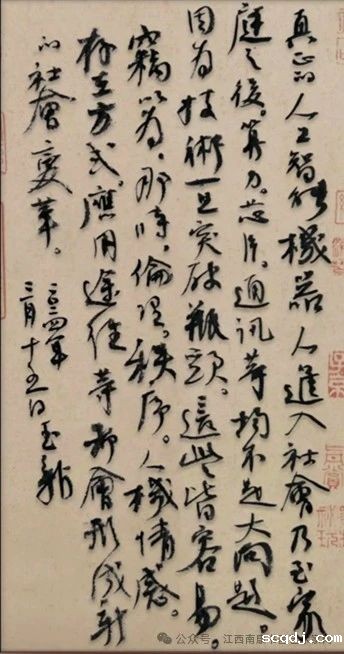 真正的人工智能機器人進入社會乃至家
庭之後。算力。芯片。通訊等均不是大問題。
因為技術一旦突破瓶頸。這些皆容易。
竊以為，那時，倫理。秩序。人機情感。
存在方式。應用途徑等都會形成新
的社會變革。
二〇二四年
三月十五日玉龍
公众号·江西南
scqdj.com